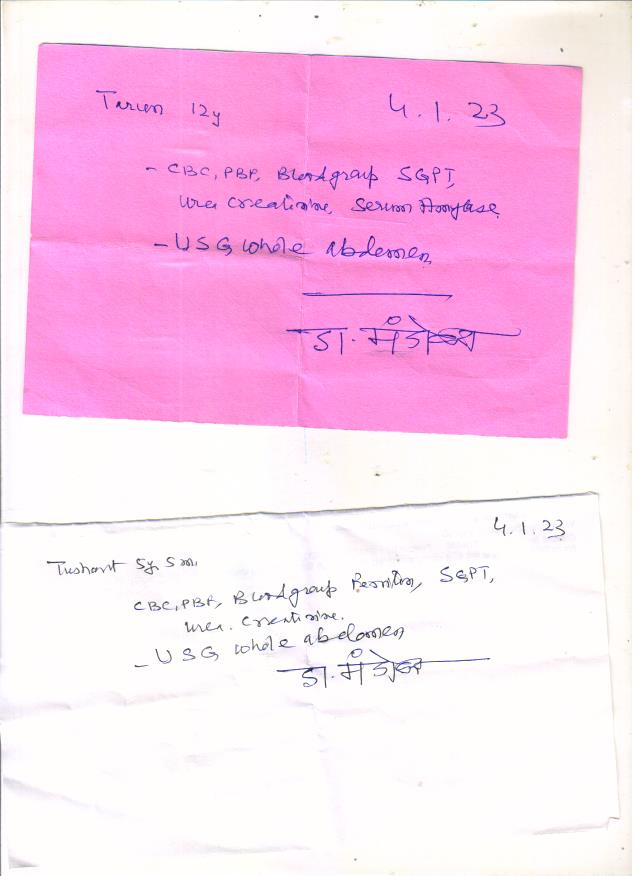 Tarun 12y
4.1.23
- CBC, PBF, Blood group SGPT,
Urea Creatinine, Serum Amylase
- USG whole abdomen
डा. मंडोल
4.1.23
Tushant 5y 5m
CBC, PBF, Blood group Ferritin, SGPT,
Urea. Creatinine.
- USG whole abdomen
डा. मंडोल